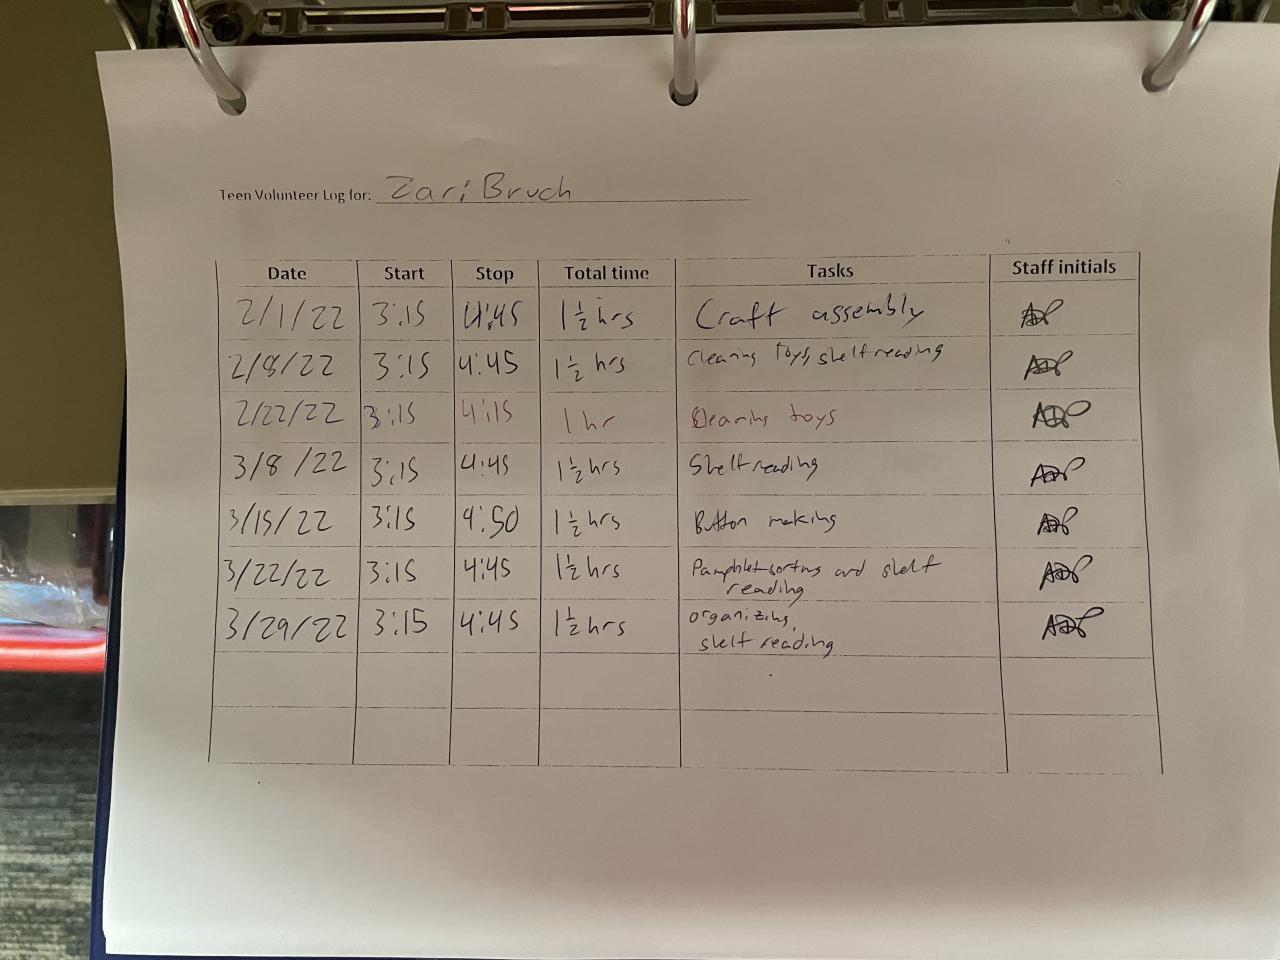 Teen Volunteer Log for: Zari Bruch
Date Start Stop Total time Tasks Staff initials
2/1/22 3:15 4:45 1 1/2 hrs Craft assembly
2/8/22 3:15 4:45 1 1/2 hrs Cleaning toys, shelf reading
2/22/22 3:15 4:15 1 hr Cleaning toys
3/8/22 3:15 4:45 1 1/2 hrs Shelf reading
3/15/22 3:15 4:50 1 1/2 hrs Button making
3/22/22 3:15 4:45 1 1/2 hrs Pamphlet sorting and shelf
reading
3/29/22 3:15 4:45 1 1/2 hrs organizing,
shelf reading